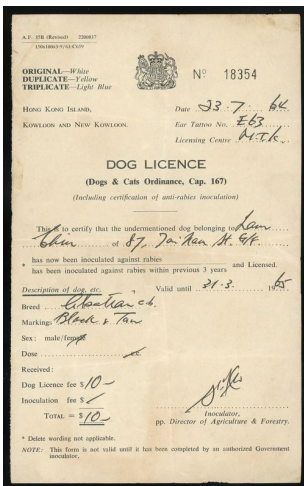 A.F. 35B (Revised) 2200037
ORIGINAL—White
DUPLICATE—Yellow
TRIPLICATE—Light Blue
Nº 18354
HONG KONG ISLAND,
KOWLOON AND NEW KOWLOON.
Date 23.7.64
Ear Tattoo No. E63
Licensing Centre M.T.K.
DOG LICENCE
(Dogs & Cats Ordinance, Cap. 167)
(Including certification of anti-rabies inoculation)
This is to certify that the undermentioned dog belonging to Lam
of 87, Tai Nan St. G/F.
* has now been inoculated against rabies
has been inoculated against rabies within previous 3 years and Licensed.
Description of dog, etc. Valid until 31.3. 1965
Breed Alsatian
Marking Black & Tan
Sex: male/female
Dose cc.
Received:
Dog Licence fee $10-
Inoculation fee $
TOTAL = $10-
Inoculator,
pp. Director of Agriculture & Forestry.
* Delete wording not applicable.
NOTE: This form is not valid until it has been completed by an authorized Government
inoculator.